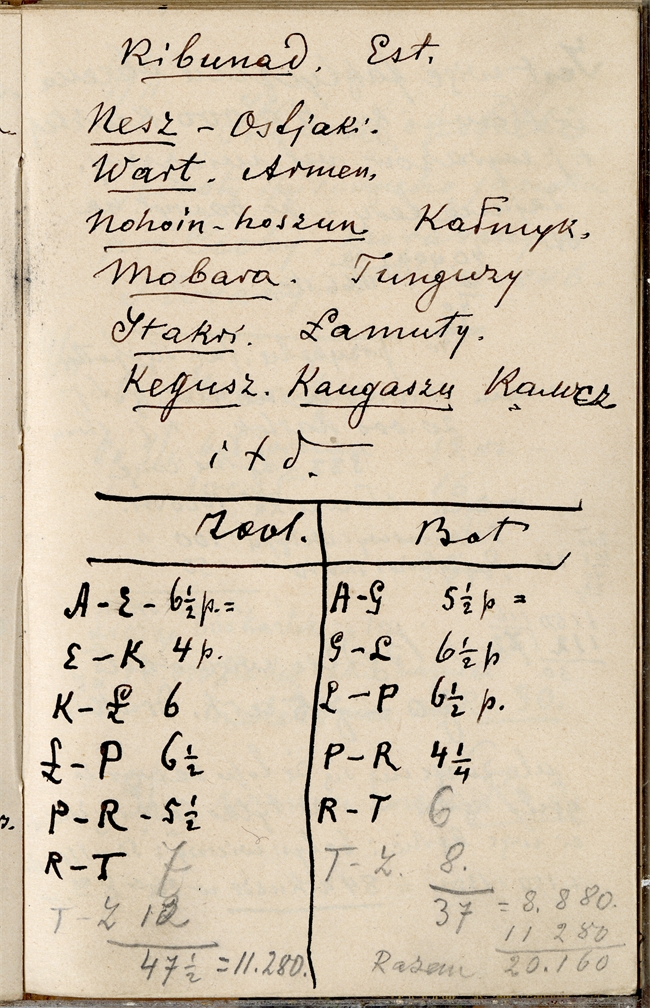 Kibunad. Est.
Nesz - Ostjaki.
Wart. Armen.
Nohoin-hoszun Kałmyk.
Mobara. Tunguzy
Łamuty.
Kegusz. Kaugaszy
i t d.
Zool. Bot
A-E- 6½ p.= A-G 5½ p =
E-K 4p. G-L 6½ p
K-Ł 6 L-P 6½ p.
Ł-P 6½ P-R 4¼
P-R-5½ R-T 6
R-T 7 T-Z. 8.
T-Z 37 = 8.880.
11 280
47½ = 11.280. Razem 20.160